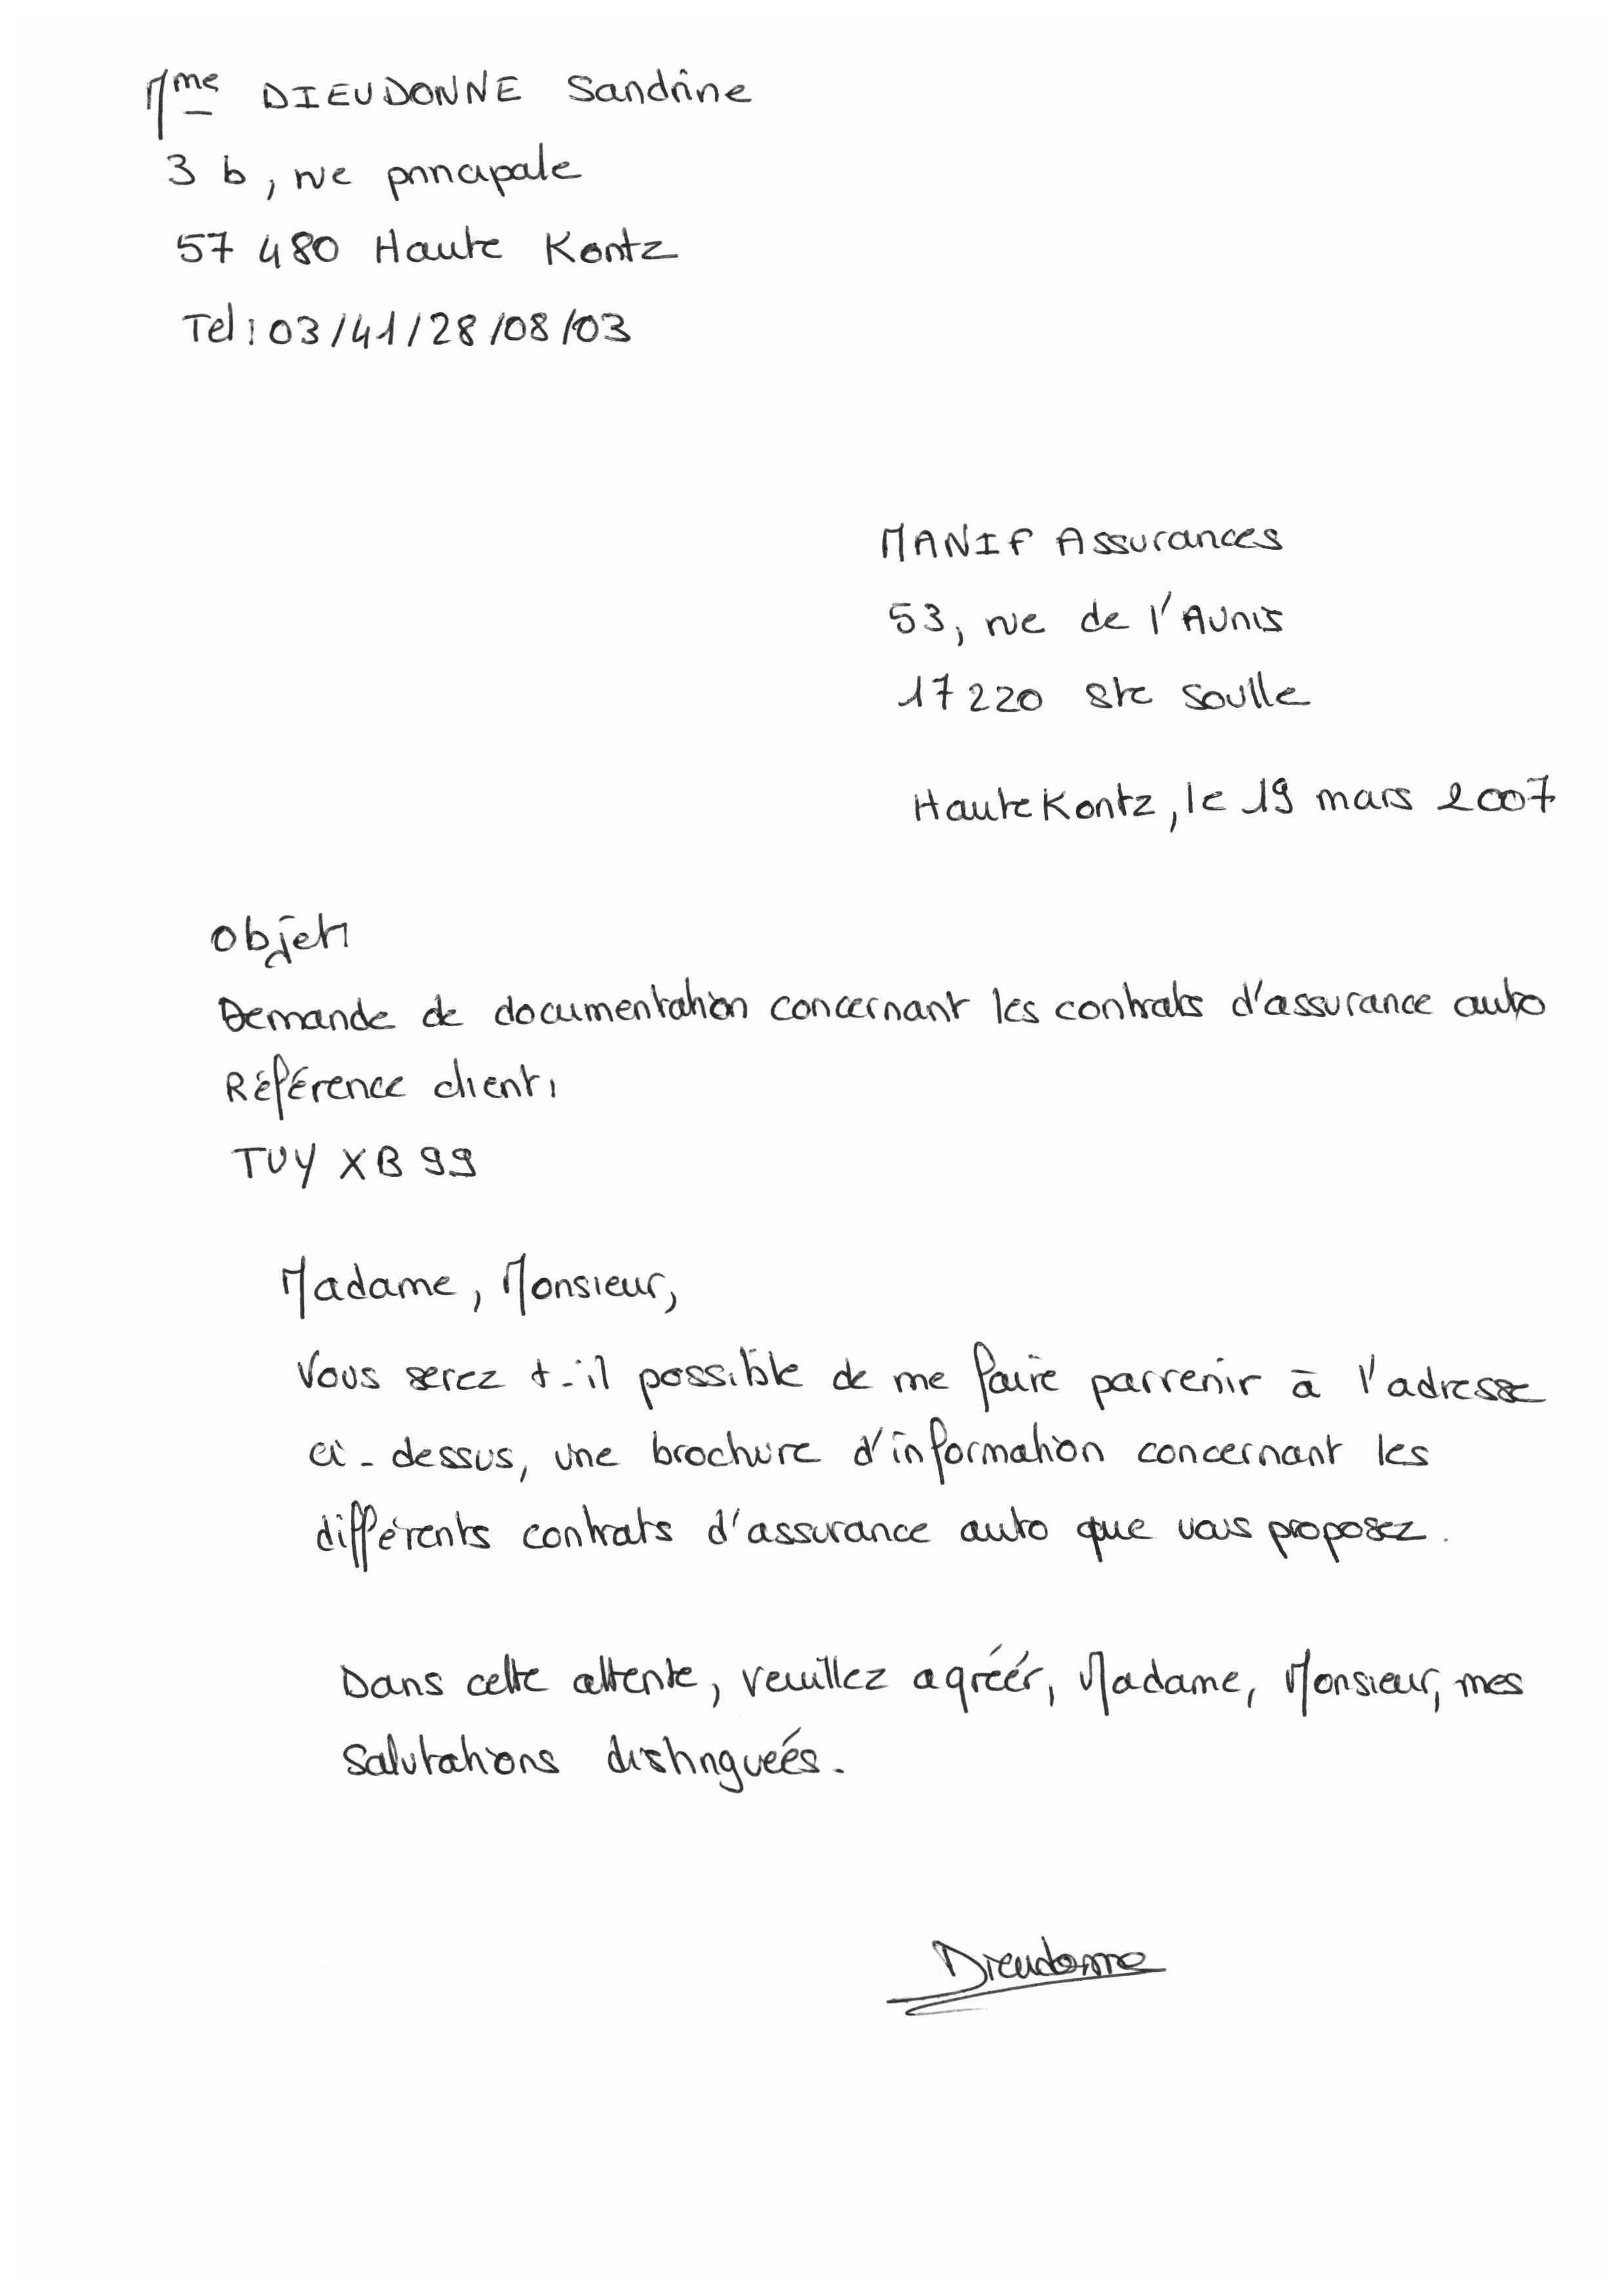 Mme DIEUDONNE Sandrine
3 b, rue principale
57 480 Haute Kontz
Tel : 03/41/28/08/03
MANIF Assurances
53, rue de l'Aunis
17 220 Ste Soulle
Haute Kontz, le 19 mars 2007
Objet :
Demande de documentation concernant les contrats d'assurance auto
Référence client :
TUY XB 99
Madame, Monsieur,
Vous serez t-il possible de me faire parvenir à l'adresse
ci-dessus, une brochure d'information concernant les
différents contrats d'assurance auto que vous proposez.
Dans cette attente, veuillez agréér, Madame, Monsieur, mes
Salutations distinguées.
Dieudonne